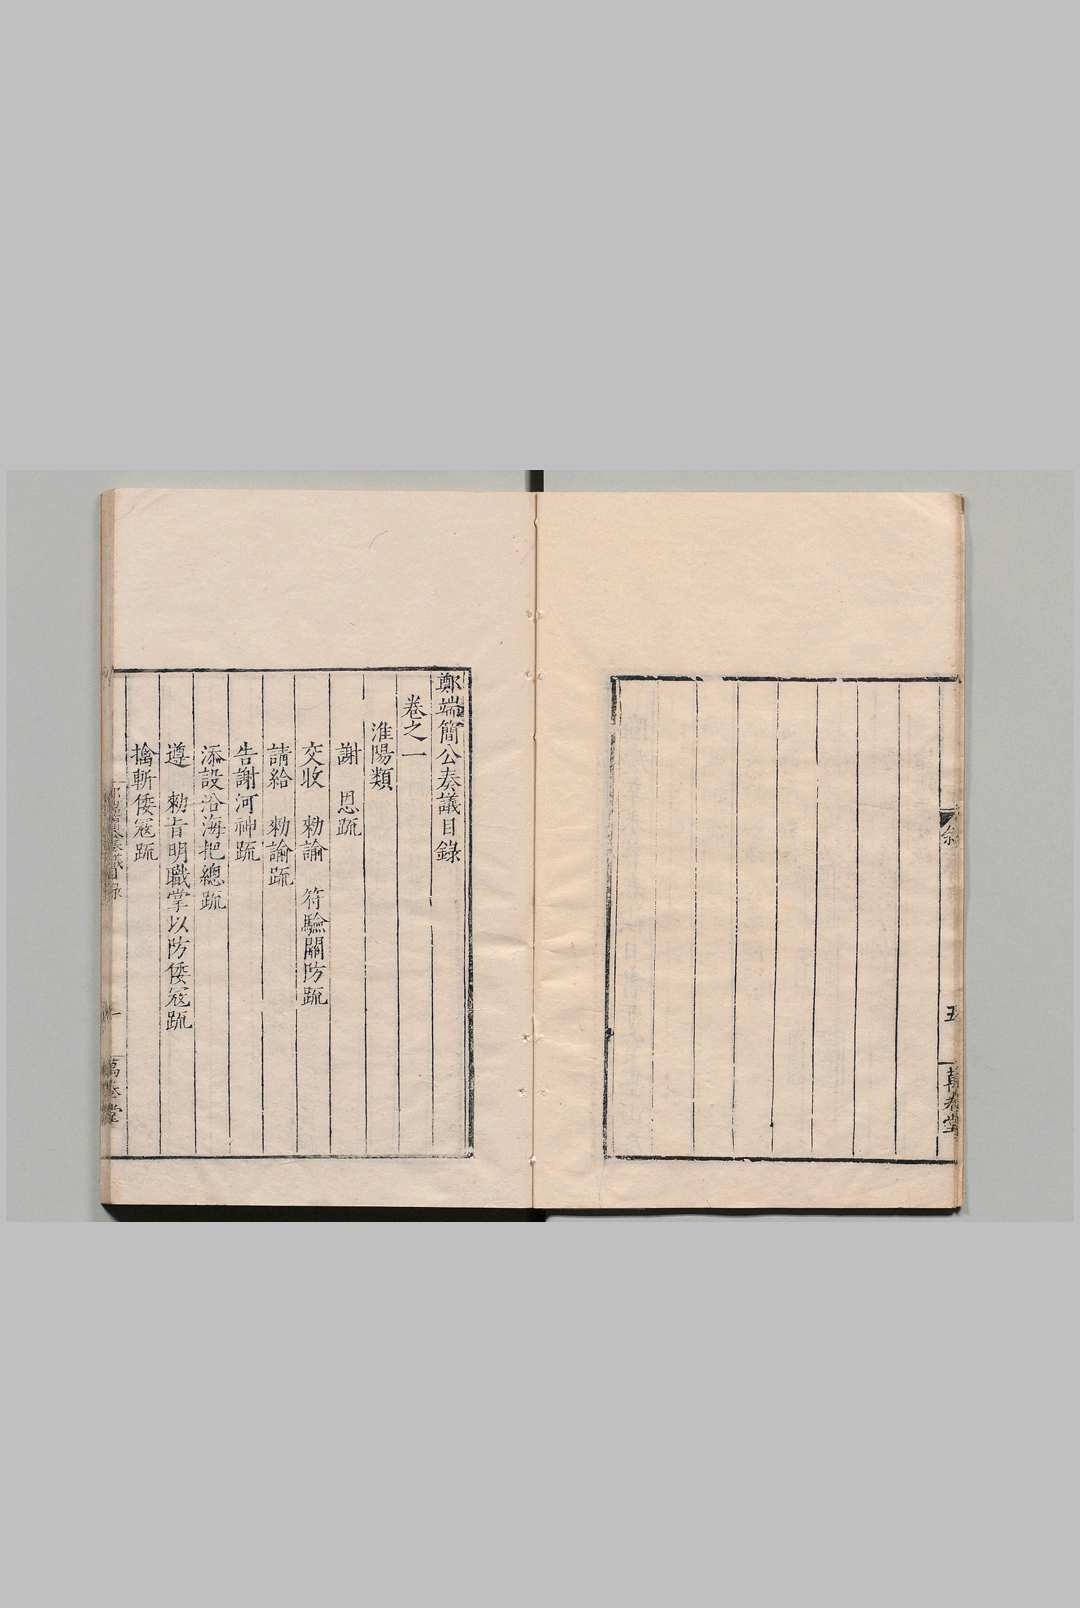 敘
五
萬卷堂
鄭端簡公奏議目錄
卷之一
淮陽類
謝　恩疏
交收　勑諭　符驗關防疏
請給　勑諭疏
告謝河神疏
添設沿海把總疏
遵　勑旨明職掌以防倭寇疏
擒斬倭寇疏
鄭端簡公奏議目錄
一
萬卷堂